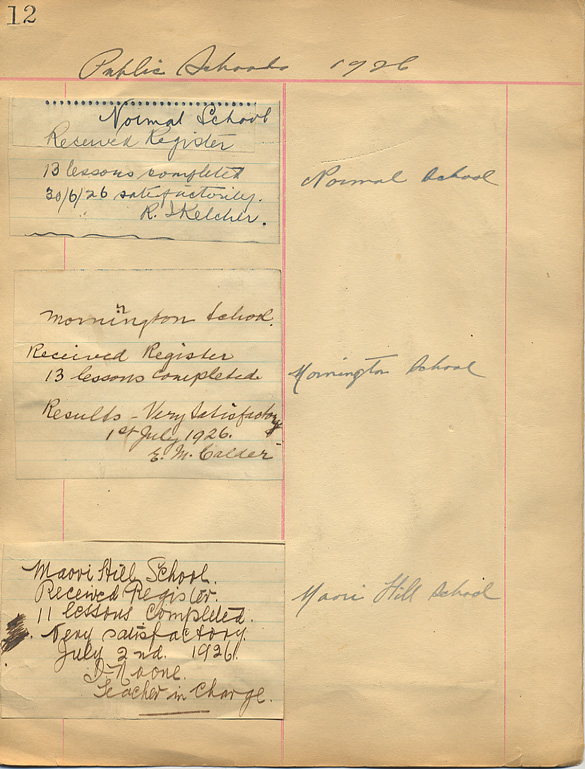 12
Public Schools 1926
Normal School
Received Register
13 lessons completed
30/6/26 satisfactorily.
Normal School
Mornington School.
Received Register
13 lessons completed
Results - Very Satisfactory
1st July 1926.
E. M. Calder
Mornington School
Maori Hill School.
Received Register.
11 lessons Completed.
Very satisfactory
July 2nd. 1926.
Teacher in Charge.
Maori Hill School